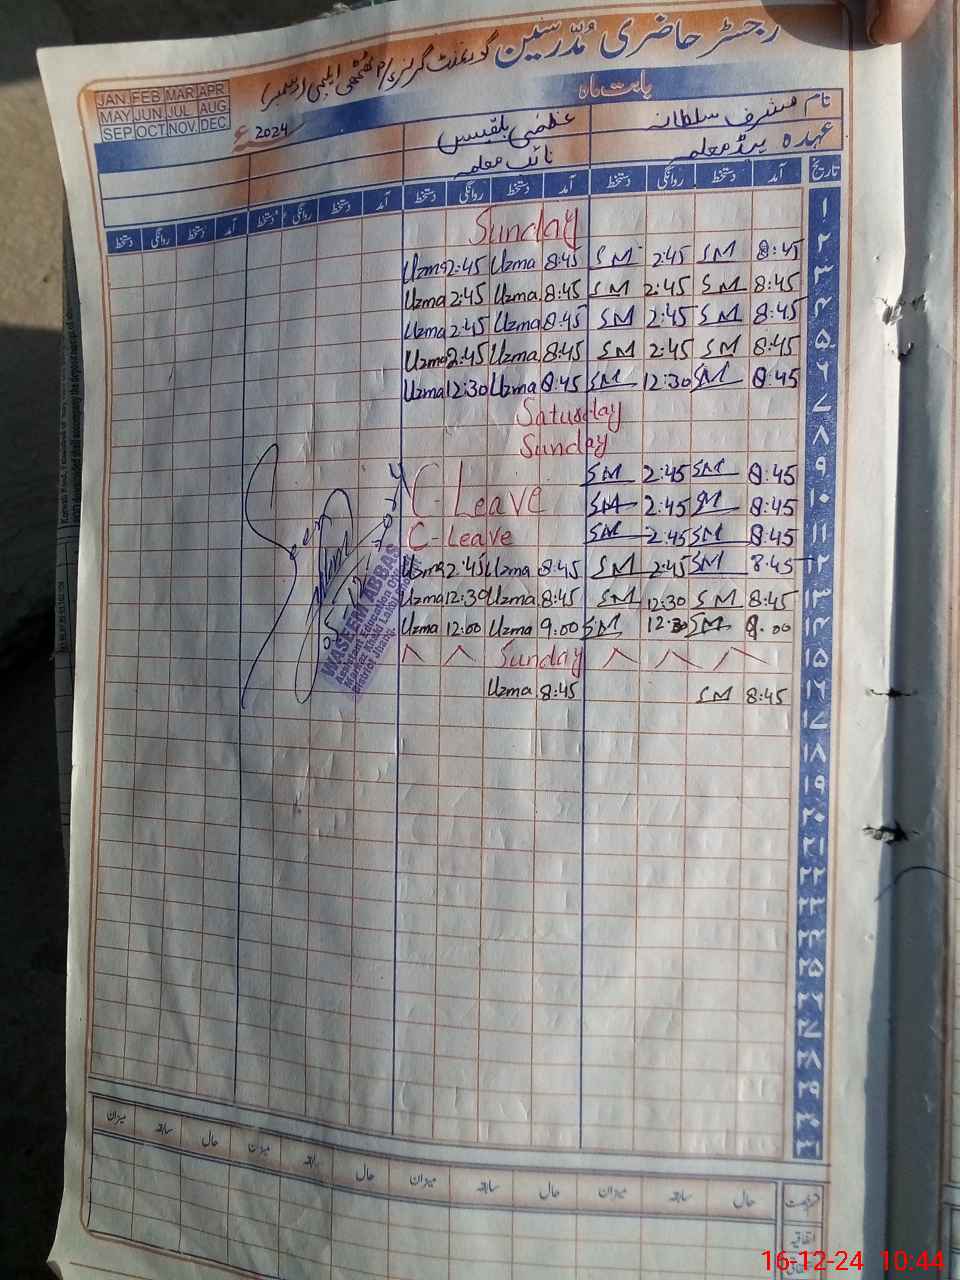 رجسٹر حاضری مدرسین گورنمنٹ گرلز
بابت ماہ
JAN FEB MAR APR
MAY JUN JUL AUG
SEP OCT NOV DEC
2024ء
نام مشرف سلطانہ عظمیٰ بلقیس
عہدہ ہیڈ معلمہ نائب معلمہ
تاریخ آمد دستخط روانگی دستخط آمد دستخط روانگی دستخط آمد دستخط روانگی دستخط آمد دستخط روانگی دستخط
۱ Sunday
۲ 8:45 SM 2:45 SM 8:45 Uzma 2:45 Uzma
۳ 8:45 SM 2:45 SM 8:45 Uzma 2:45 Uzma
۴ 8:45 SM 2:45 SM 8:45 Uzma 2:45 Uzma
۵ 8:45 SM 2:45 SM 8:45 Uzma 2:45 Uzma
۶ 8:45 SM 12:30 SM 8:45 Uzma 12:30 Uzma
۷ Saturday
۸ Sunday
۹ 8:45 SM 2:45 SM
۱۰ 8:45 SM 2:45 SM C-Leave
۱۱ 8:45 SM 2:45 SM C-Leave
۱۲ 8:45 SM 2:45 SM 8:45 Uzma 2:45 Uzma
۱۳ 8:45 SM 12:30 SM 8:45 Uzma 12:30 Uzma
۱۴ 9.00 SM SM 9.00 Uzma 12.00 Uzma
۱۵ Sunday
۱۶ 8:45 SM 8:45 Uzma
۱۷
۱۸
۱۹
۲۰
۲۱
۲۲
۲۳
۲۴
۲۵
۲۶
۲۷
۲۸
۲۹
۳۰
۳۱
WASEEM ABBAS
Assistant Education Officer
District Jhang
رخصت حال سابقہ میزان حال سابقہ میزان حال سابقہ میزان حال سابقہ میزان
اتفاقیہ
16-12-24 10:44